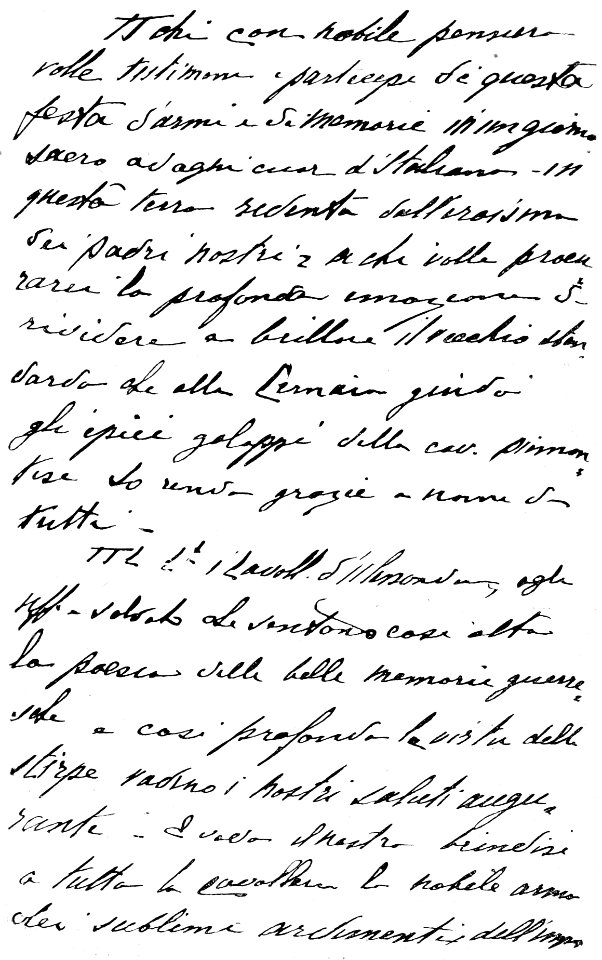 A chi con nobile pensiero
volle testimone e partecipe di questa
festa d'armi e di memorie in un giorno
sacro ad ogni cuor d'Italiano - in
questa terra redenta dall'eroismo
dei padri nostri e a chi volle procu
rarci la profonda emozione di
rividere a brillare il vecchio sten-
dardo che alla Cernaia guidò
gli epici galoppi della cav. piemon-
tese Io rendo grazie a nome di
tutti -
Al i Cavall. d'Alessandria, agli
uff. e soldati che sentono così alta
la poesia delle belle memorie guerre-
sche e così profonda la virtù della
stirpe vadino i nostri saluti augu-
ranti - E vada il nostro brindisi
a tutta la cavalleria la nobile arma
dei sublimi ardimenti e dell'impe